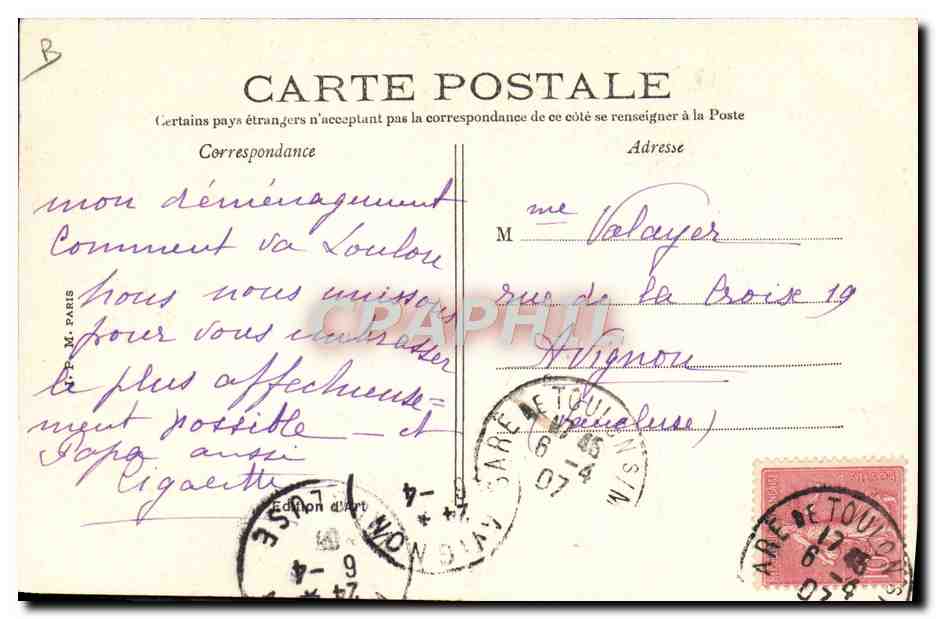 B
CARTE POSTALE
Certains pays étrangers n'acceptant pas la correspondance de ce côté se renseigner à la Poste
Correspondance
Adresse
mon déménagement
Comment va Loulou
nous nous unissons
pour vous embrasser
le plus affectueuse=
ment possible - et
Papa aussi
Cigalette
M me Valayer
rue de la Croix 19
Avignon
(Vaucluse)
J. P. M. PARIS
Edition d'Art
CPAPHIL
GARE DE TOULON
17 45
6 -4
07
AVIGNON
24 *
6 -4
LUSE
24 *
6 -4
GARE DE TOULON S
17 45
6 -4
07
10